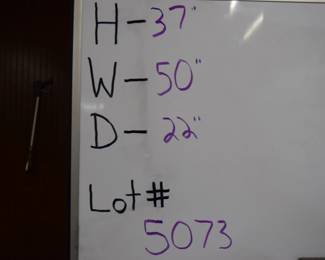 H-37"
W-50"
D-22"
Lot#
5073